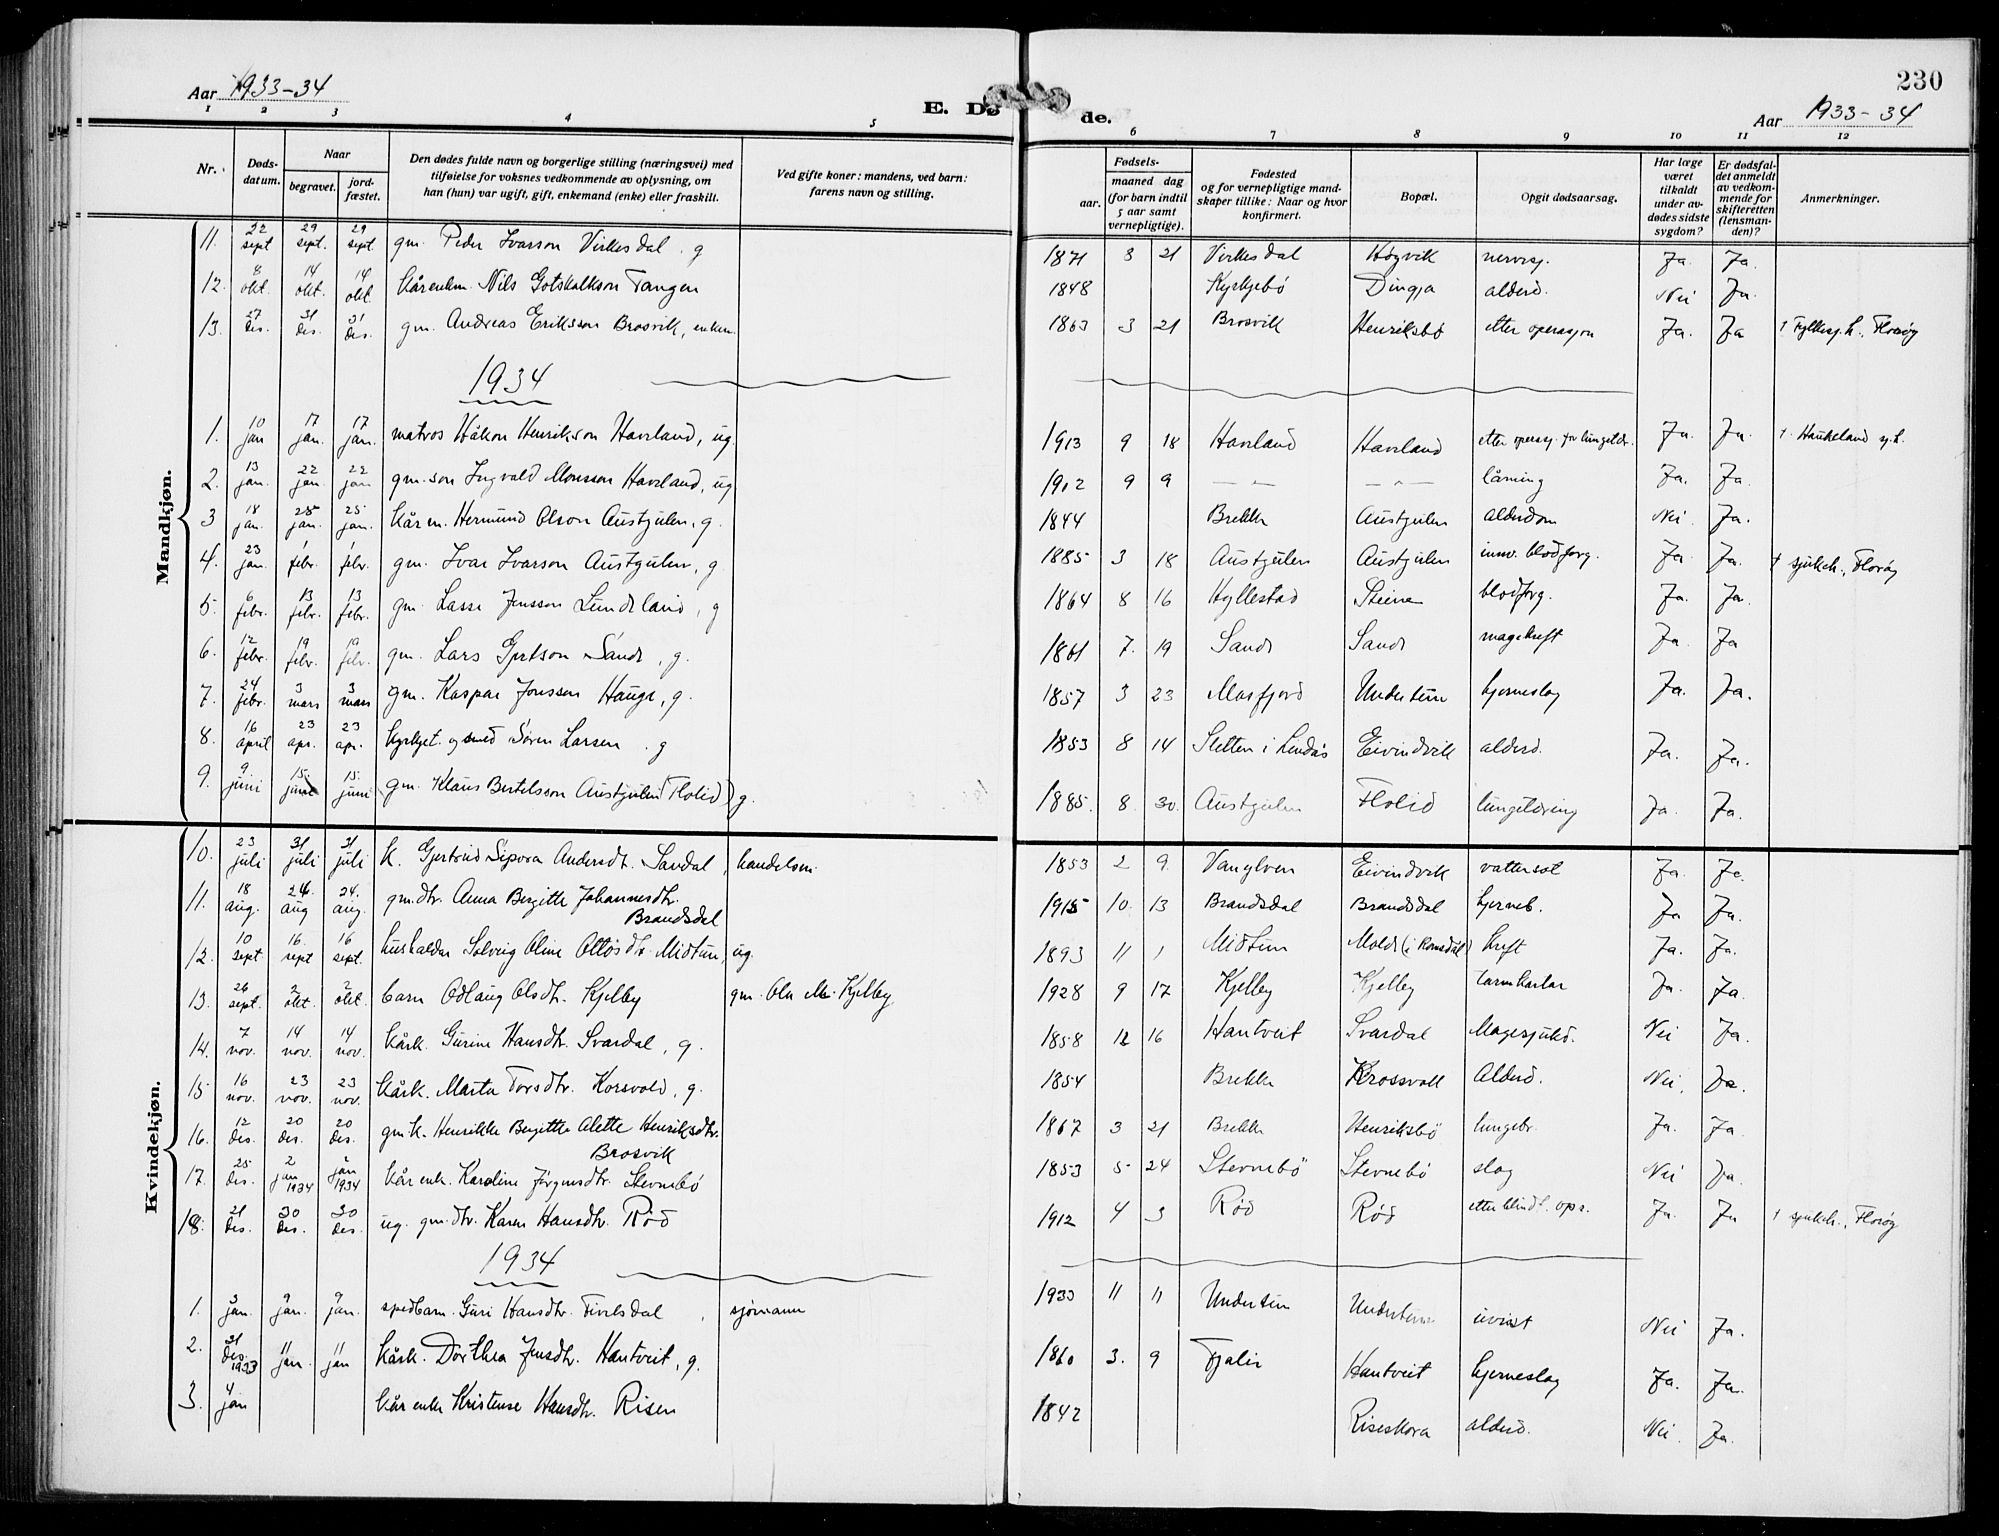 230
Aar 1933-34
E. Døde.
Aar 1933-34
1 2 3 4 5 6 7 8 9 10 11 12
Nr.
Døds-datum.
Naar
begravet.
jord-fæstet.
Den dødes fulde navn og borgerlige stilling (næringsvei) med
tilføielse for voksnes vedkommende av oplysning, om
han (hun) var ugift, gift, enkemand (enke) eller fraskilt.
Ved gifte koner: mandens, ved barn:
farens navn og stilling.
Fødsels-
aar.
maaned dag
(for barn indtil
5 aar samt
vernepligtige).
Fødested
og for vernepligtige mand-
skaper tillike: Naar og hvor
konfirmert.
Bopæl.
Opgit dødsaarsag.
Har læge
været
tilkaldt
under av-
dødes sidste
sygdom?
Er dødsfal-
det anmeldt
av vedkom-
mende for
skifteretten
(lensman-
den)?
Anmerkninger.
Mandkjøn.
11. 22 sept 29 sept. 29 sept. gm. Peder Ivarson Virkesdal. g 1871 3 21 Virkesdal Høgvik nervesj. Ja. Ja.
12. 8 okt. 14 okt. 14 okt. kårenkm. Nils Gotskalkson Tangen 1848 Kyrkjebø Dingja alderd. Nei Ja.
13. 27 des. 31 des. 31 des. gm. Andreas Eriksson Brosvik, enkem. 1863 3 21 Brosvik Henriksbø etter operasjon Ja. Ja † Fylkessj.h., Florøy
1934
1. 10 jan 17 jan. 17 jan. matros Håkon Henrikson Haveland, ug. 1913 9 18 Haveland Haveland etter operasj. for lungetær. Ja. Ja. † Haukeland sj.h.
2. 13 jan. 22 jan. 22 jan gm.son Ingvald Monsson Haveland, ug 1912 9 9 — " — — " — tåring Ja. Ja.
3 18 jan. 25 jan. 25 jan. kårm. Hermund Olson Austgulen, g. 1844 Brekke Austgulen alderdom Nei. Ja.
4. 23 jan. 1 febr. 1 febr. gm. Ivar Ivarson Austgulen, g 1885 3 18 Austgulen Austgulen innv. blodforg. Ja. Ja. † sjukeh., Florøy
5. 6 febr. 13 febr. 13 febr. gm. Lasse Jensson Lundeland, g 1864 8 16 Hyllestad Steine blodforg. Ja. Ja.
6. 12 febr. 19 febr. 19 febr. gm. Lars Gjertson Sande, g. 1861 7. 19 Sande Sande magekreft Ja. Ja
7. 24 febr. 3 mars 3 mars gm. Kaspar Jonsson Hauge, g. 1857 3 23 Masfjord Undertun hjerneslag Ja. Ja.
8. 16 april 23 apr. 23 apr. kyrkjet. og smed Søren Larsen. g 1853 8 14 Sletten i Lindås Eivindvik alderd. Ja. Ja.
9. 9 juni 15. juni 15. juni gm. Klaus Bertelsson Austgulen (Flolid) g. 1885. 8. 30. Austgulen Flolid lungetæring Ja. Ja.
Kvindekjøn.
10. 23 juli 31 juli 31 juli k. Gjertrud Sipora Andersdt. Sandal, handelsm. 1853 2 9. Vangeven Eivindvik vattersot Ja. Ja.
11. 18 aug. 24. aug 24. aug. gm.dtr. Anna Bergitte Johannesdtr. Brandsdal 1915 10. 13 Brandsdal Brandsdal hjerneb. Ja Ja.
12. 10 sept 16. sept 16 sept. hushalder Solveig Oline Ottosdtr. Midtun, ug. 1893 11 1 Midtun Molde (i Romsdal) kreft Ja. Ja.
13. 26 sept. 2 okt. 2 okt. barn Odlaug Olsdtr. Kjelby gm. Ole M. Kjelby 1928 9 17 Kjelby Kjelby tarmkatar Ja. Ja.
14. 7 nov. 14 nov. 14 nov. kårk. Gurine Hansdtr. Svardal, g. 1858 12 16 Hantveit Svardal Magesjukd. Nei Ja.
15 16 nov. 23 nov. 23 nov. kårk. Marta Torsdtr. Korsvold, g. 1854 Brekke Krossvoll Alderd. Nei. Ja.
16. 12 des. 20 des. 20 des. gmk. Henrikke Bergitte Alette Henriksdtr. Brosvik 1867 3 21 Brekke Henriksbø lungebr. Ja. Ja.
17. 25 des. 2 jan 1934 2 jan 1934 kårenk. Karoline Jørgensdtr. Stevnebø 1853 5 24 Stevnebø Stevnebø slag Nei Ja.
18. 21 des. 30 des. 30 des. ug. gm.dtr. Karen Hansdtr. Rød 1912 4 3 Rød Rød etter blindt. opr. Ja. Ja † sjukeh., Florøy
1934
1. 3 jan. 9 jan. 9 jan. spedbarn. Guri Hansdtr. Tveitsdal, sjømann 1933 11 11 Undertun Undertun uvisst Nei Ja.
2. 31 des. 1933 11 jan. 11 jan kårk. Dorthea Jensdtr. Hantveit, g. 1860 3. 9 Fjaler Hantveit hjerneslag Ja. Ja.
3. 4 jan kårenke Kristense Hansdtr. Risen 1842 Riseskora alderd. Nei. Ja.